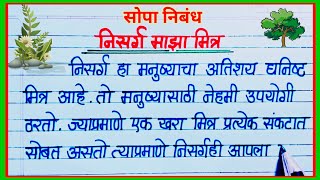 सोपा निबंध
निसर्ग माझा मित्र
निसर्ग हा मनुष्याचा अतिशय घनिष्ट
मित्र आहे. तो मनुष्यासाठी नेहमी उपयोगी
ठरतो. ज्याप्रमाणे एक खरा मित्र प्रत्येक संकटात
सोबत असतो त्याप्रमाणे निसर्गही आपला